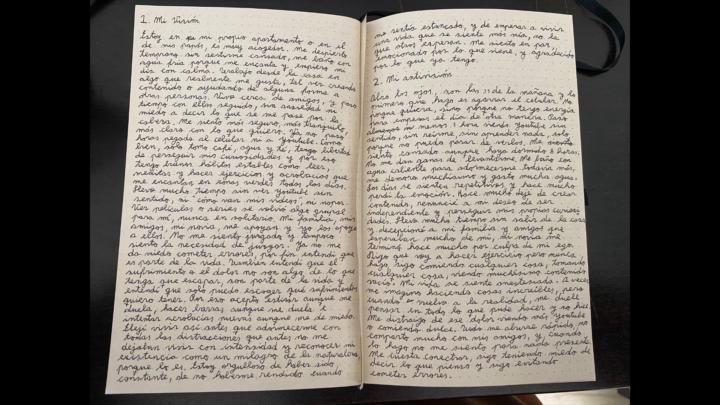 1. Mi Visión
Estoy en mi propio apartamento o en el
de mis papás, es muy acogedor. Me despierto
temprano sin sentirme cansado, me baño con
agua fría porque me encanta y empiezo mi
día con calma. Trabajo desde la casa en
algo que realmente me gusta, tal vez creando
contenido o ayudando de alguna forma a
otras personas. Vivo cerca de amigos, y paso
tiempo con ellos seguido, sin ansiedad ni
miedo a decir lo que se me pase por la
cabeza. Me siento más seguro, más tranquilo,
más claro con lo que quiero. Ya no paso
horas pegado al celular ni a Youtube. Como
bien, solo tomo café, agua y té, tengo libertad
de perseguir mis curiosidades y por eso
tengo buenos hábitos estables como leer,
meditar y hacer ejercicios y acrobacias que
me encantan en zonas verdes todos los días.
Llevo mucho tiempo sin ver Youtube sin
sentido, ni "cómo van mis videos", ni nopor.
Ver películas o series se volvió algo grupal
para mí, nunca en solitario. Mi familia, mis
amigos, mi novia, me apoyan y yo los apoyo
a ellos. No me siento juzgado y tampoco
siento la necesidad de juzgar. Ya no me
da miedo cometer errores, por fin entendí que
es parte de la vida. También entendí que el
sufrimiento o el dolor no son algo de lo que
tenga que escapar, son parte de la vida y
entendí que solo puedo escoger qué sufrimientos
quiero tener. Por eso acepto estirar aunque me
duela, hacer barras aunque me duela e
intentar acrobacias nuevas aunque me de miedo.
Elegí vivir así antes que adormecerme con
todas las distracciones que antes no me
dejaban vivir con intensidad y reconocer mi
existencia como un milagro de la naturaleza,
porque lo es. Estoy orgulloso de haber sido
constante, de no haberme rendido cuando
me sentía estancado, y de empezar a vivir
una vida que se siente más mía, no la
que otros esperan. Me siento en paz,
emocionado por lo que viene, y agradecido
por lo que ya tengo.
2. Mi antivisión
Abro los ojos, son las 11 de la mañana y lo
primero que hago es agarrar el celular. No
porque quiera, sino porque no tengo energía
para empezar el día de otra manera. Paso
almenos 1 hora viendo Youtube sin
sentido, sin reírme, sin aprender nada, solo
porque no puedo parar de verlos. Me siento
siento cansado aunque haya dormido 8 horas.
No me dan ganas de levantarme. Me baño con
agua caliente para adormecerme todavía más,
me demoro muchísimo y gasto mucha agua.
Los días se sienten repetitivos y hace mucho
perdí la emoción. Hace mucho dejé de crear
contenido, renuncié a mi deseo de ser
independiente y perseguir mis propias curiosi-
dades. Llevo mucho tiempo sin salir de la casa
y decepcioné a mi familia y amigos que
esperaban mucho de mí, mi novia me
terminó hace mucho por culpa de mi ego.
Digo que voy a hacer ejercicio pero nunca
lo hago, sigo comiendo cualquier cosa, tomando
cualquier cosa, viendo muchísimo contenido
vacío. Mi vida se siente anestesiada. A veces
me imagino haciendo cosas increíbles, pero
cuando vuelvo a la realidad, me duele
pensar en todo lo que pude hacer y no hice.
Me distraigo de ese dolor viendo más youtube
o comiendo dulce. Todo me aburre rápido, no
comparto mucho con mis amigos, y cuando
lo hago no me siento para nada presente.
Me cuesta conectar, sigo teniendo miedo de
decir lo que pienso y sigo evitando
cometer errores.